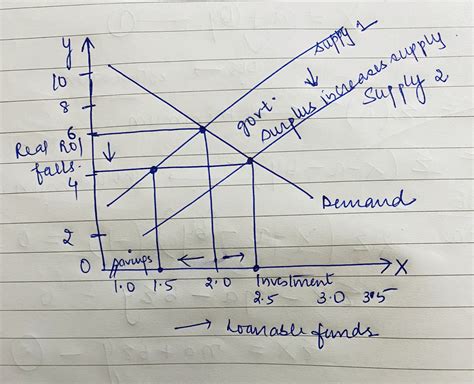 y
supply 1
10
govt.
surplus increases supply
Supply 2
8
6
Real ROI
falls.
4
Demand
2
0
savings
Investment
X
1.0 1.5 2.0 2.5 3.0 3.5
→ Loanable funds